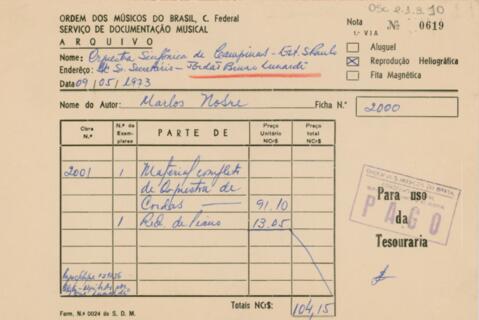 OSC 2.1.3.10
ORDEM DOS MÚSICOS DO BRASIL, C. Federal
SERVIÇO DE DOCUMENTAÇÃO MUSICAL
ARQUIVO
Nota Nº 0619
1.ª VIA
Nome: Orquestra Sinfônica de Campinas - Est. S. Paulo
Endereço: Sr. Secretário - Jordão Bruno Lunardi
Data 09/05/1973
Aluguel
Reprodução Heliográfica
Fita Magnética
Nome do Autor: Marlos Nobre
Ficha N.º 2000
Obra N.º
N.º de Exemplares
PARTE DE
Preço Unitário NCr$
Preço total NCr$
2001 1 Material completo
de Orquestra de
Cordas — 91,10
1 Red. de Piano 13,05
ORDEM DOS MÚSICOS DO BRASIL
PAGO
Para uso
da
Tesouraria
Totais NCr$: 104,15
Form. N.º 0024 do S. D. M.